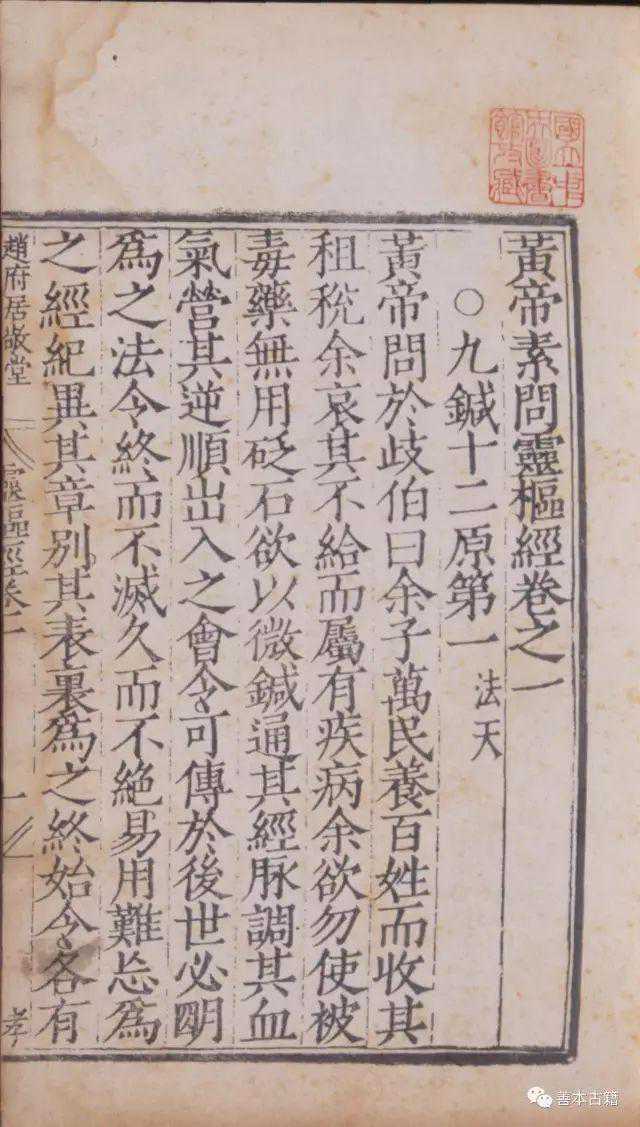 國立中
央圖書
館收藏
黃帝素問靈樞經卷之一
○九鍼十二原第一 法天
黃帝問於歧伯曰余子萬民養百姓而收其
租稅余哀其不給而屬有疾病余欲勿使被
毒藥無用砭石欲以微鍼通其經脉調其血
氣營其逆順出入之會令可傳於後世必明
爲之法令終而不滅久而不絕易用難忘爲
之經紀異其章別其表裏爲之終始令各有
趙府居敬堂
靈樞經卷一
一
善本古籍